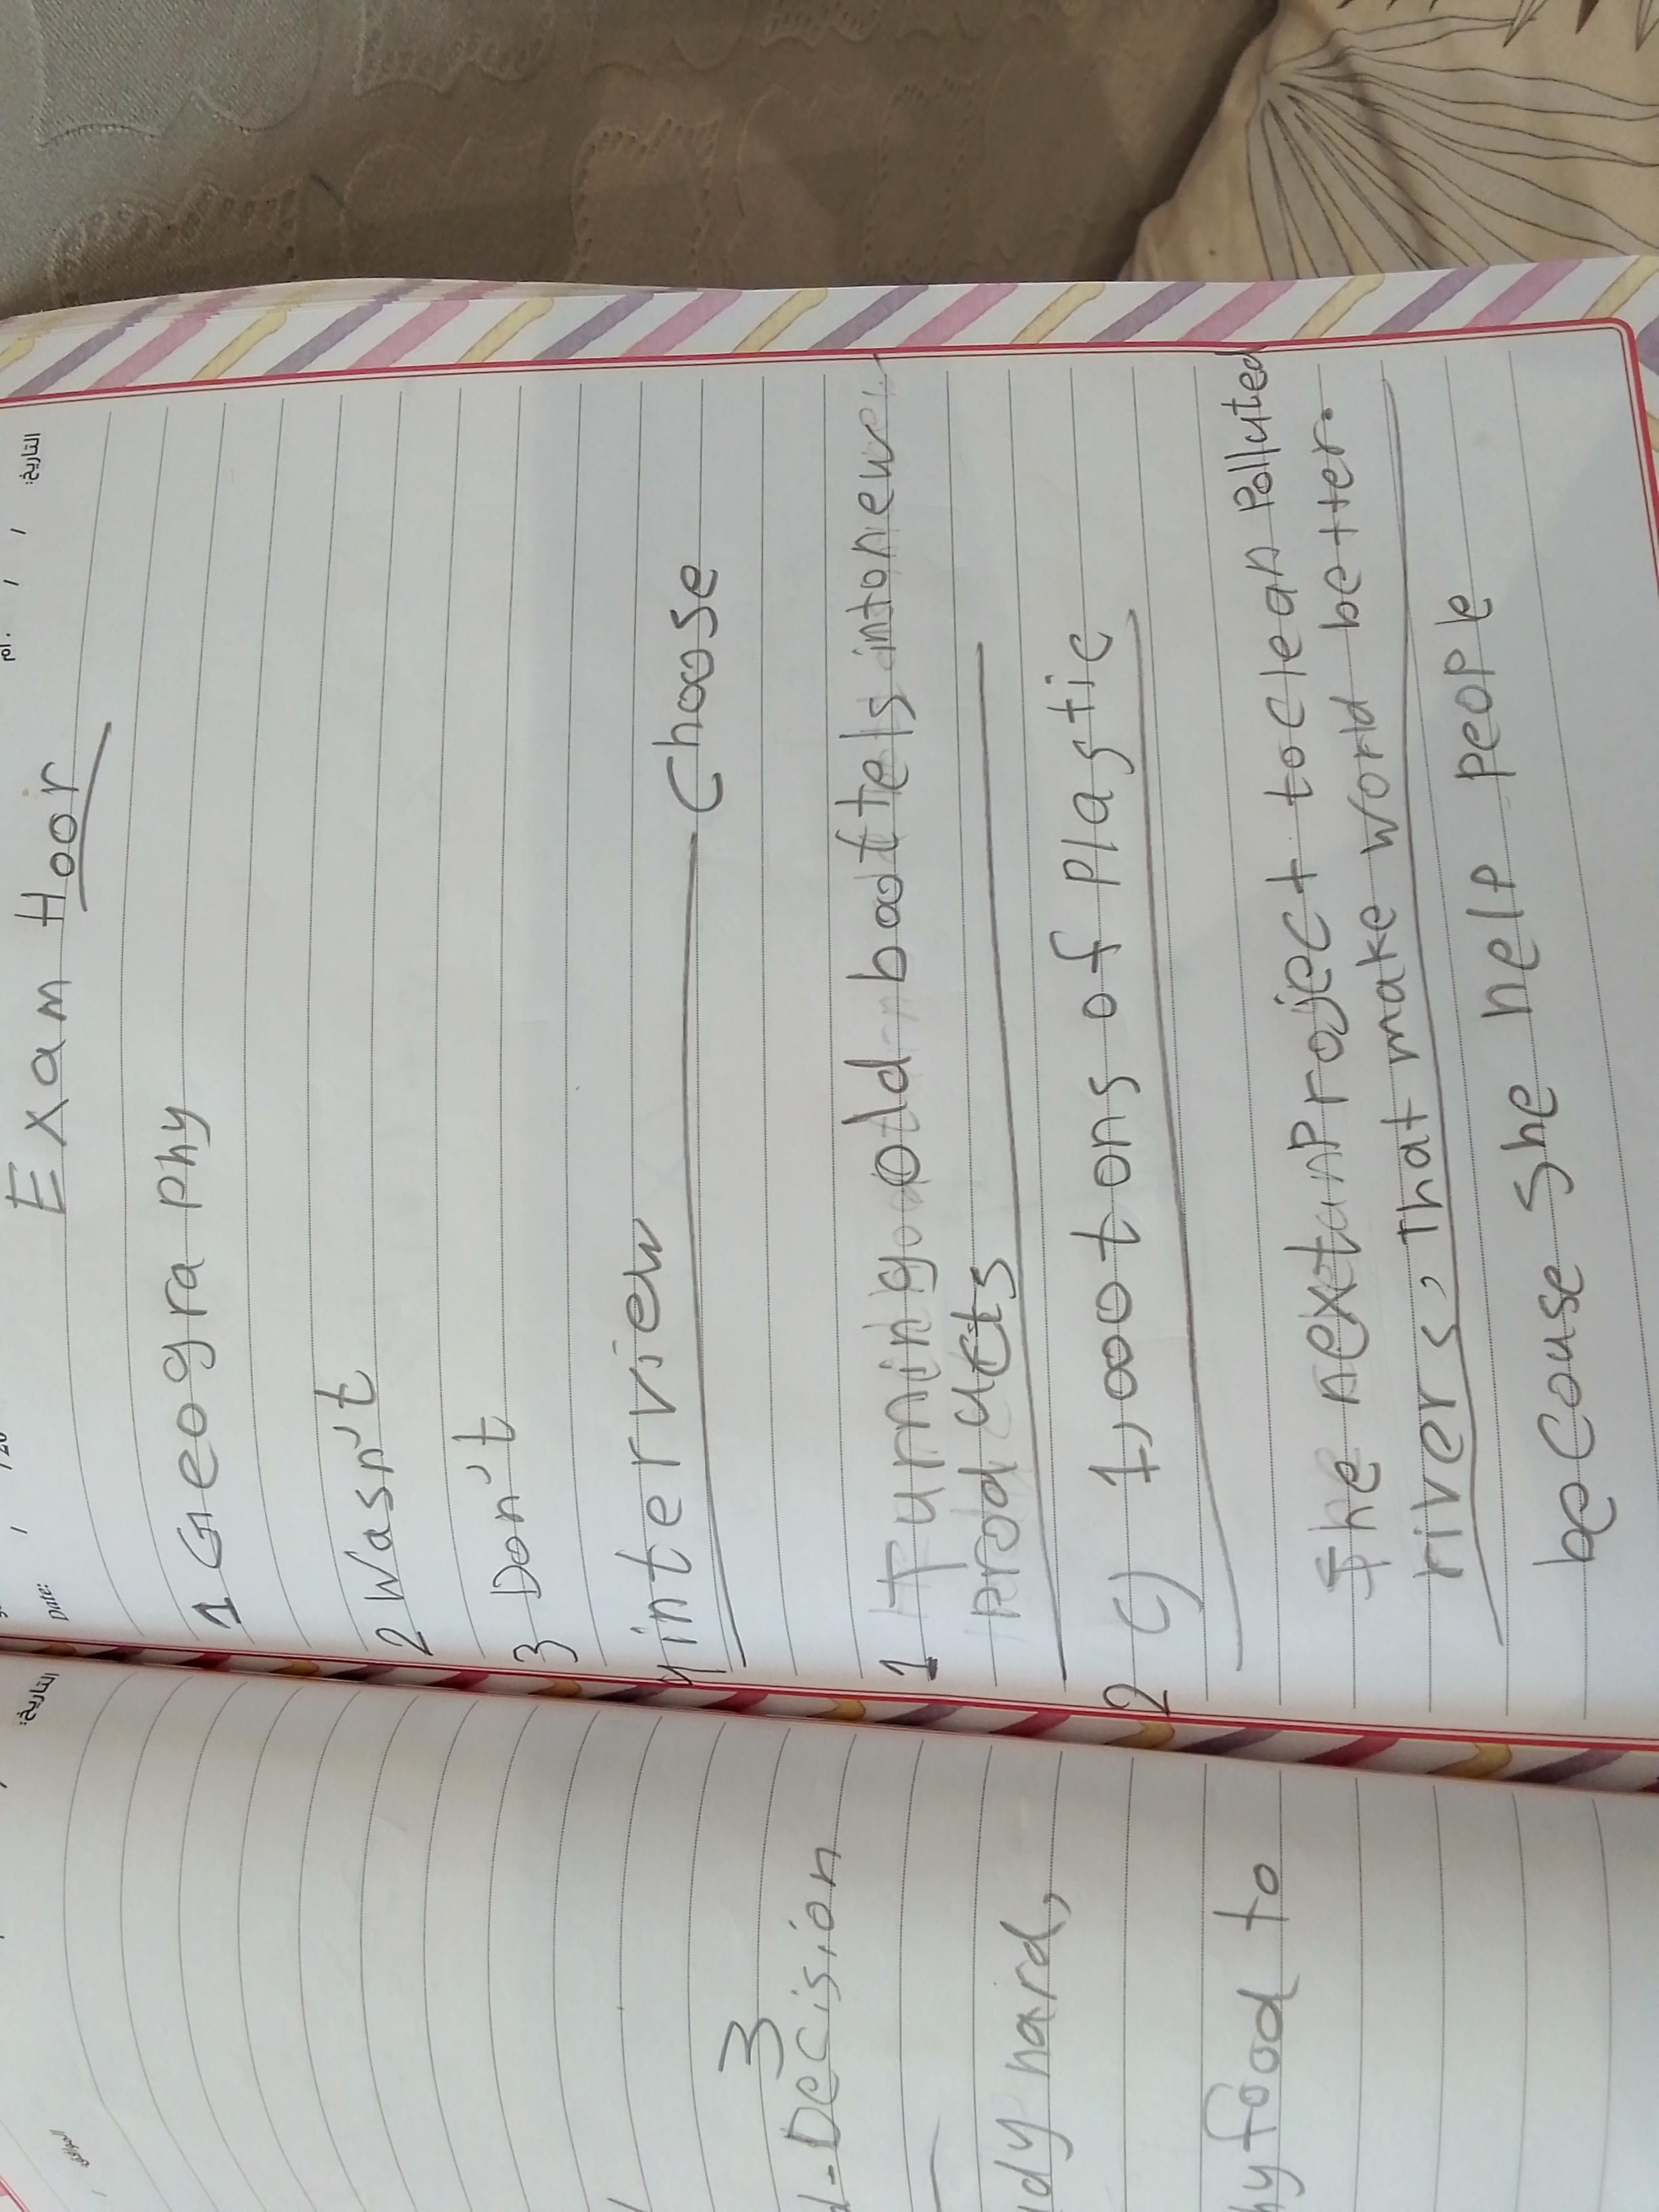 التاريخ:
d-Decision
3
udy hard,
hy food to
Date: / / 20
التاريخ: / /
Exam Hoor
1 Geography
2 Wasn't
3 Don't
4 interview Choose
1 Turning old bottels into new
Products
2 c) 1,000 tons of Plastic
The next Project to clean Polluted
rivers, That make world better.
beCouse She help people